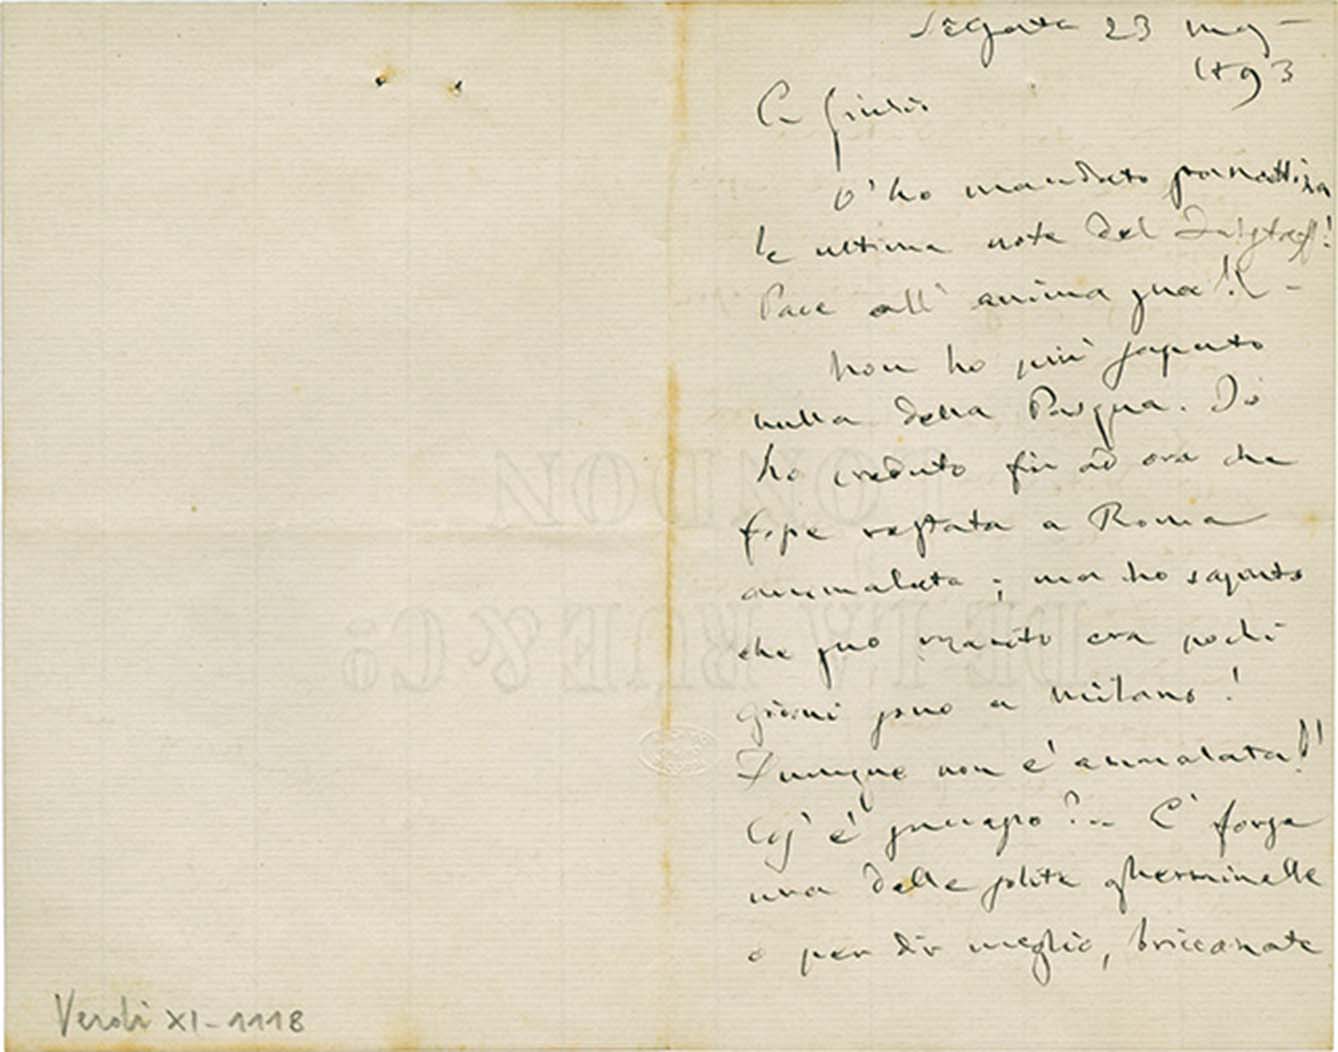 S Agata 23 mag
1893
C Giulio
V'ho mandato stamattina
le ultime note del Falstaff!
Pace all' anima sua!! -
Non ho più saputo
nulla della Pasqua. Io
ho creduto fin ad ora che
fosse restata a Roma
ammalata; ma ho saputo
che suo marito era pochi
giorni sono a Milano!
Dunque non è ammalata!!
Cos' è successo?.. E' forse
una delle solite gherminelle
o per dir meglio, bricconate
LONDON
DE LA RUE & Co
Verdi XI-1118